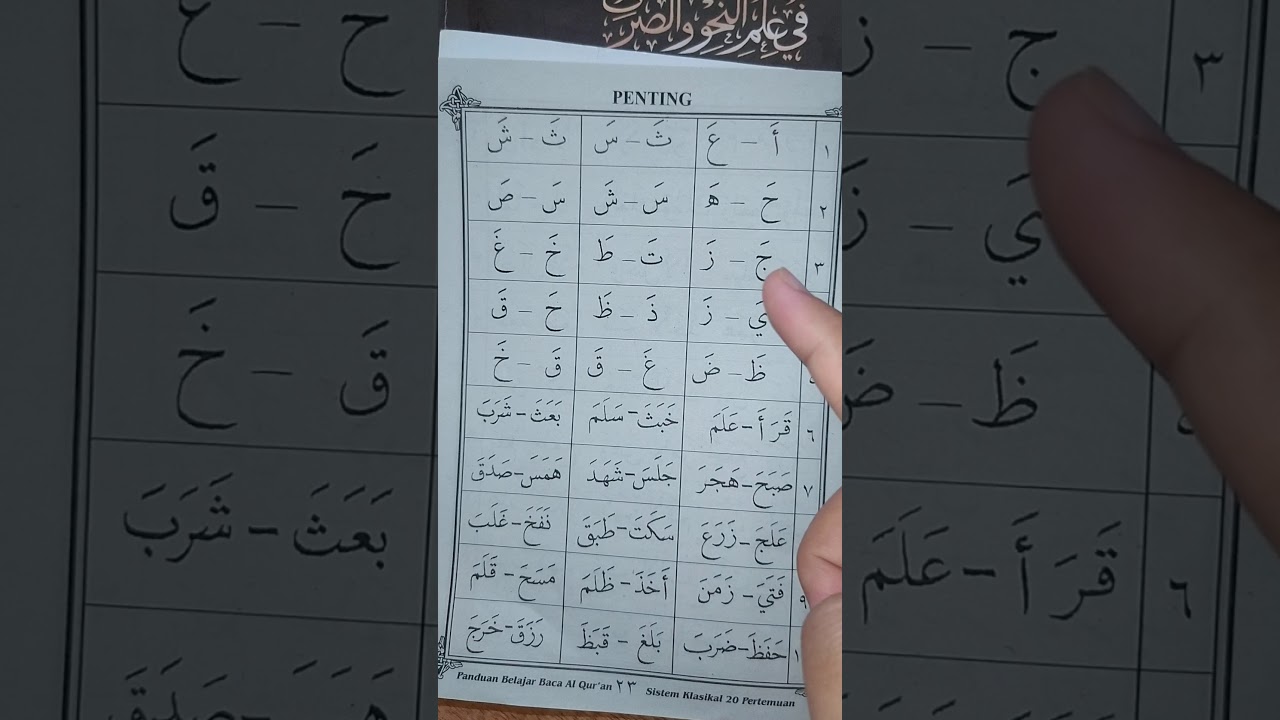 في علم النحو والصرف
PENTING
١ أَ – عَ ثَ – سَ ثَ – شَ
٢ حَ – هَ سَ – شَ سَ – صَ
٣ جَ – زَ تَ – طَ خَ – غَ
يَ – زَ ذَ – ظَ حَ – قَ
ظَ – ضَ غَ – قَ قَ – خَ
٦ قَرَأَ – عَلَمَ خَبَثَ – سَلَمَ بَعَثَ – شَرَبَ
٧ صَبَحَ – هَجَرَ جَلَسَ – شَهَدَ هَمَسَ – صَدَقَ
عَلَجَ – زَرَعَ سَكَتَ – طَبَقَ نَفَخَ – غَلَبَ
٩ فَتَيَ – زَمَنَ أَخَذَ – ظَلَمَ مَسَحَ – قَلَمَ
حَفَظَ – ضَرَبَ بَلَغَ – قَبَظَ رَزَقَ – خَرَجَ
Panduan Belajar Baca Al Qur'an ٢٣ Sistem Klasikal 20 Pertemuan